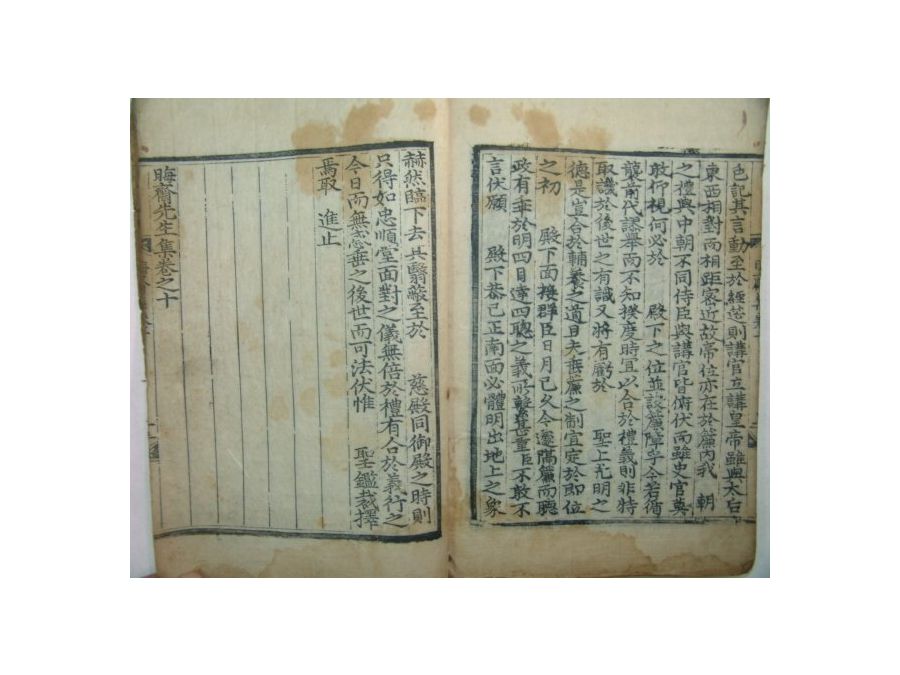 色記其言動至於經筵則講官立講皇帝雖與太后
東西相對而相距密近故帝位亦在於簾內我 朝
之禮與中朝不同侍臣與講官皆俯伏而雖史官莫
敢仰視何必於 殿下之位並設簾障乎今若循
襲前代謬擧而不知揆度時宜以合於禮義則非特
取譏於後世之有識又將有虧於 聖上光明之
德是豈合於輔養之道且夫垂簾之制宜定於即位
之初 殿下面接群臣日月已久今還隔簾而聽
政有乖於明四目達四聰之義所繫甚重臣不敢不
言伏願 殿下恭己正南面必體明出地上之象
赫然臨下去其翳蔽至於 慈殿同御殿之時則
只得如忠順堂面對之儀無倍於禮有合於義行之
今日而無忝垂之後世而可法伏惟 聖鑑裁擇
焉取 進止
晦齋先生集卷之十